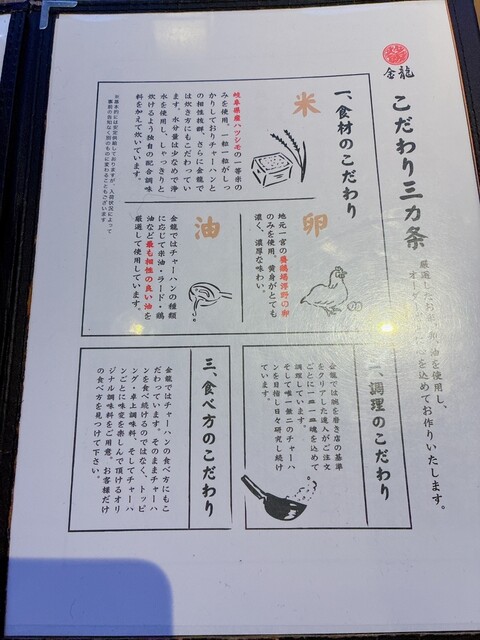 金龍
こだわり三カ条
厳選したお米、卵、油を使用し、
オーダー
を込めてお作りいたします。
一、食材のこだわり
米
岐阜県産ハツシモの一等米の
みを使用。一粒一粒がしっ
かりしておりチャーハンと
の相性抜群。さらに金龍で
は炊き方にもこだわってい
ます。水分量は少なめで浄
水を使用し、しゃっきりと
炊けるよう独自の配合調味
料を加えて炊いています。
※基本的には安定供給しておりますが、入荷状況によって
事前の告知なく別のものに変わることもございます
卵
地元一宮の養鶏場 の卵
のみを使用。黄身がとても
濃く、濃厚な味わい。
油
金龍ではチャーハンの種類
に応じて米油・ラード・鶏
油など最も相性の良い油を
厳選して使用しています。
二、調理のこだわり
金龍では腕を磨き店の基準
をクリアした達人がご注文
ごとに一皿一皿魂を込めて
調理しています。
そして唯一無二のチャーハ
ンを目指し日々研究し続け
ています。
三、食べ方のこだわり
金龍ではチャーハンの食べ方にもこ
だわっています。そのままチャーハ
ンを食べ続けるのではなく、トッピ
ング・卓上調味料、そしてチャーハ
ンごとに味変を楽しんで頂けるオリ
ジナル調味料をご用意。お客様だけ
の食べ方を見つけて下さい。